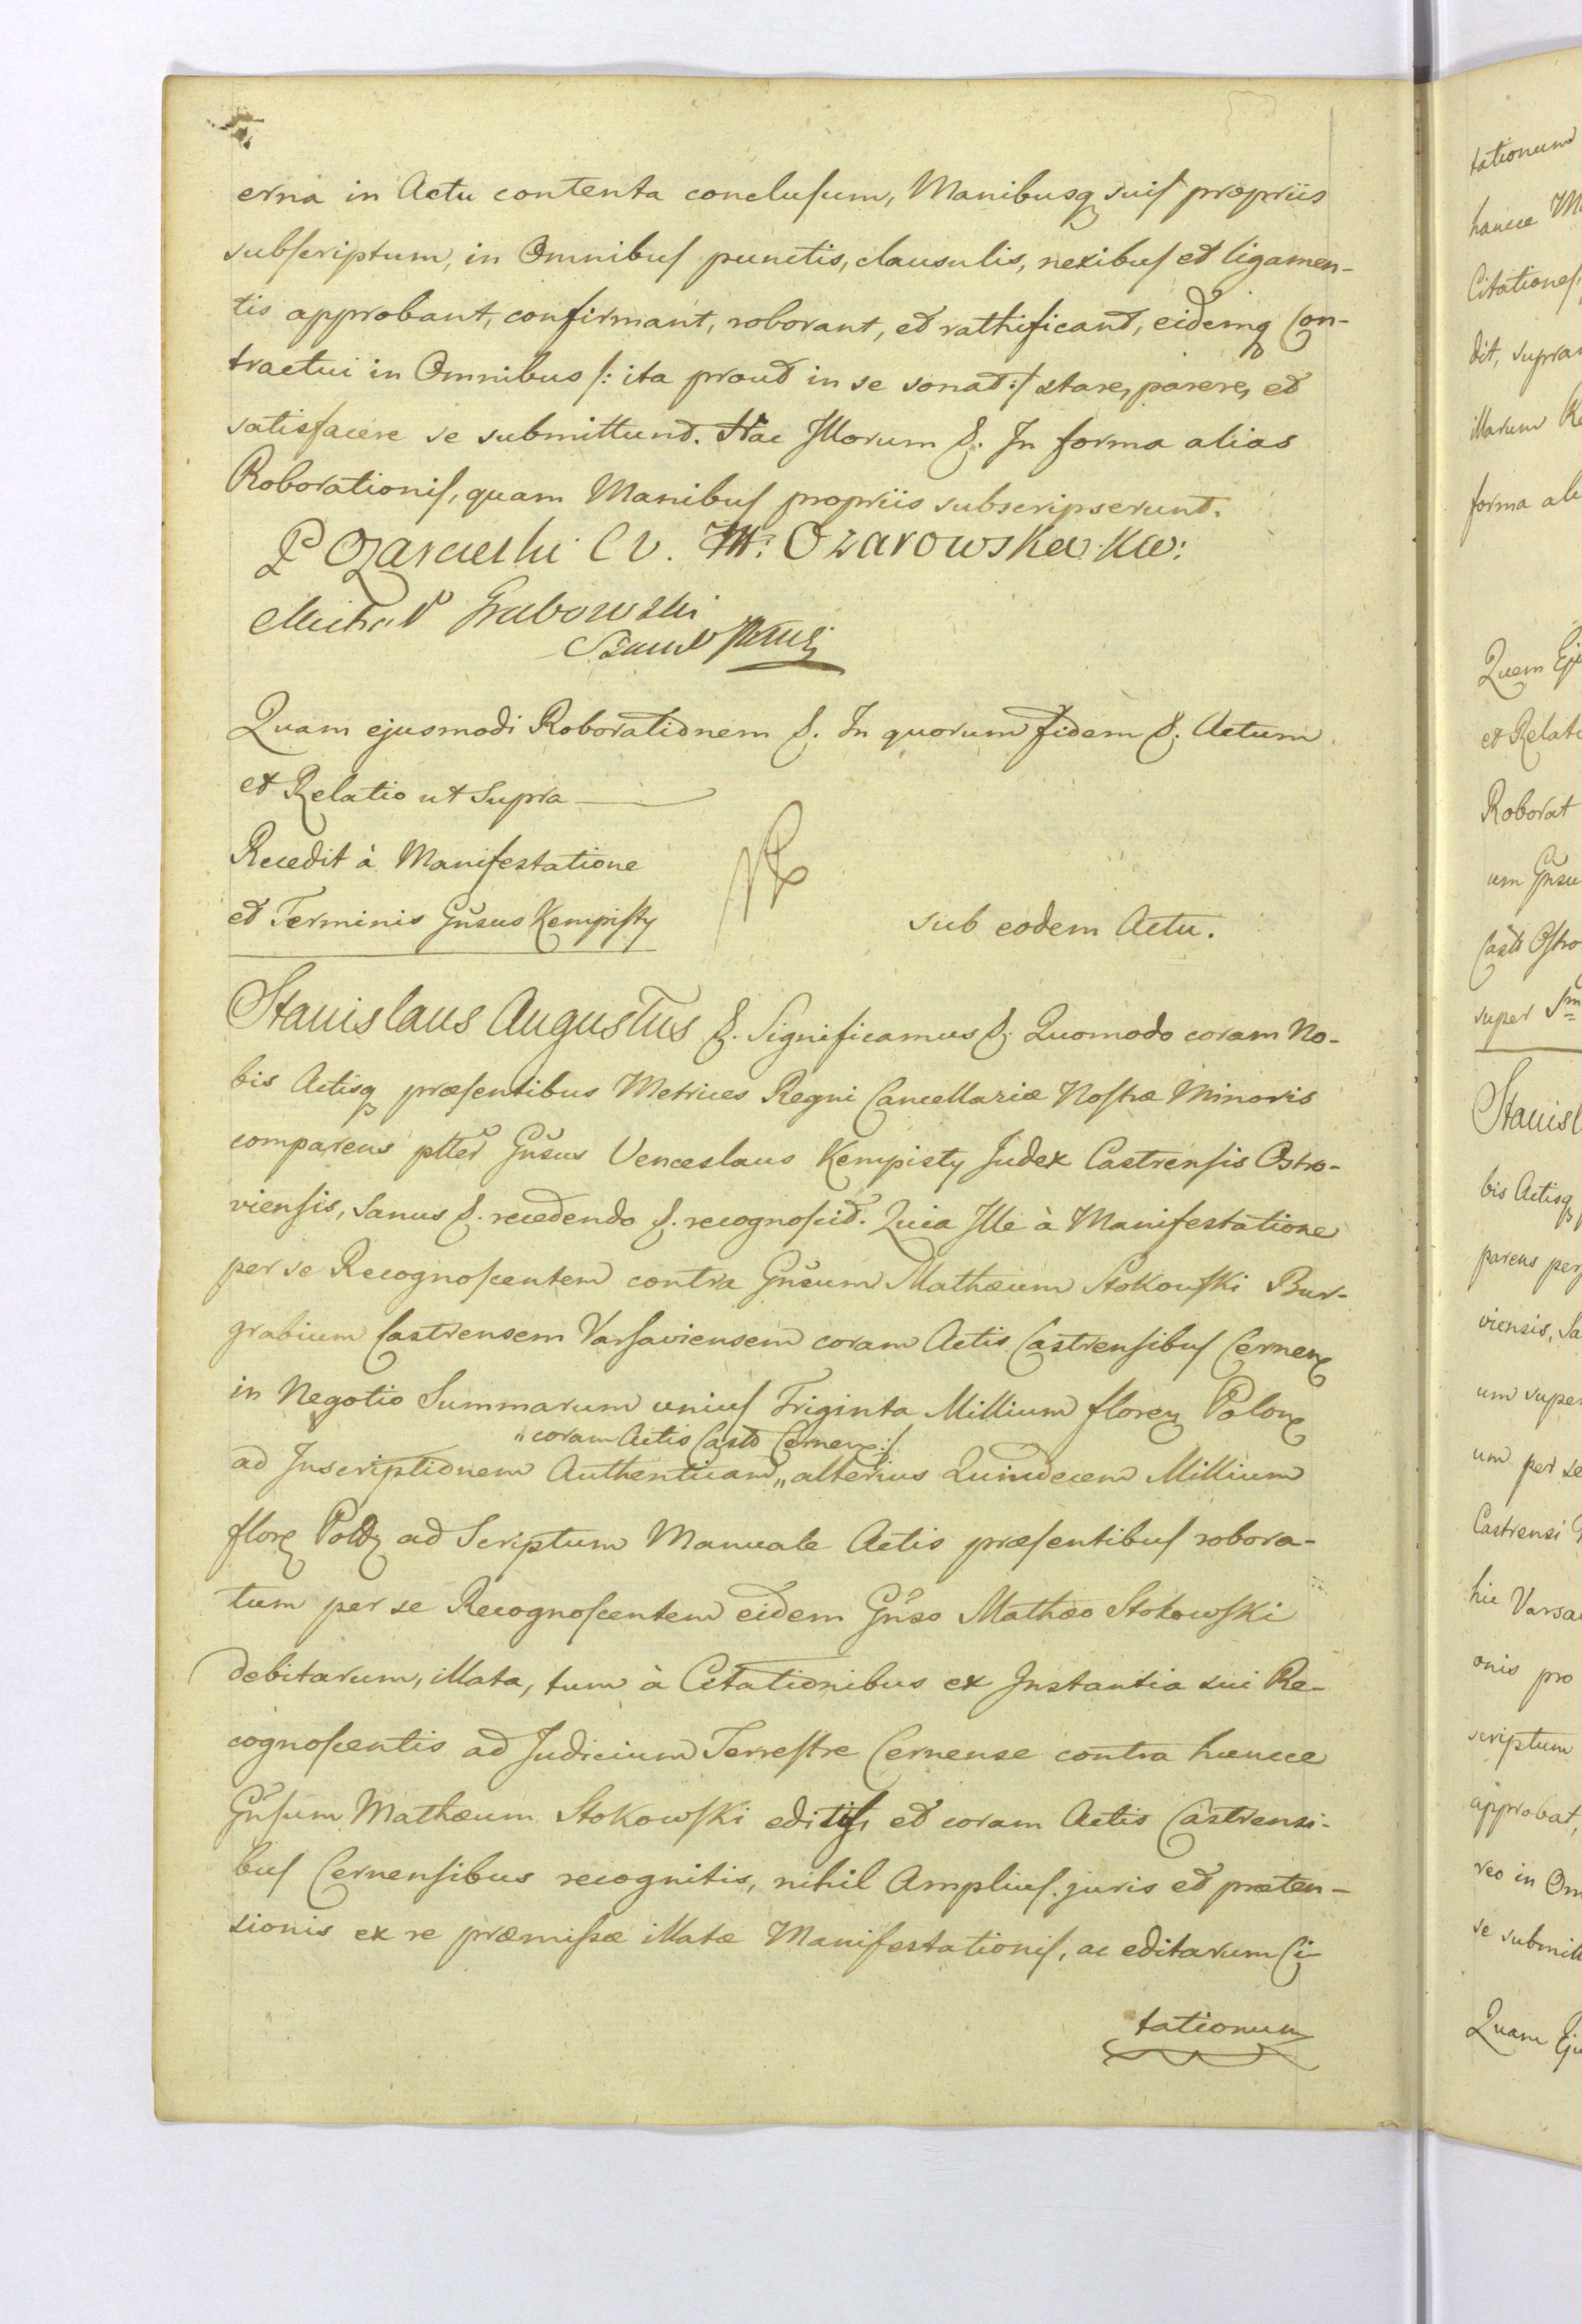 erna in Actu contenta conclusum, Manibusq suis propriis
subscriptum, in Omnibus punctis, clausulis, nexibus et ligamen-
tis approbant, confirmant, roborant, et rathificant, eidemq Con-
tractui in Omnibus /: ita prout in se sonat :/ stare, parere, et
satisfacere se submittunt. Hac Illorum &. In forma alias
Roborationis, quam Manibus propriis subscripserunt.
P Ozarowski C W. M: Ozarowska Kw:
Michał Grabowski
Quam ejusmodi Roborationem &. In quorum fidem &. Actum
et Relatio ut Supra
Recedit à Manifestatione
et Terminis Gnsus Kempisty
sub eodem Actu.
Stanislaus Augustus &. Significamus &. Quomodo coram No-
bis Actisq præsentibus Metrices Regni Cancellariæ Nostræ Minoris
comparens ptter Gnsus Venceslaus Kempisty Judex Castrensis Ostro-
viensis, Sanus &. recedendo &. recognoscit. Quia Ille à Manifestatione
per se Recognoscentem contra Gnsum Mathæum Stokowski Bur-
grabium Castrensem Varsaviensem coram Actis Castrensibus Cernen
in Negotio Summarum unius Triginta Millium floren Polon
"coram Actis Castr Cernen :/
ad Inscriptionem Authenticam „ alterius Quindecem Millium
flor Pol ad Scriptum Manuale Actis præsentibus robora-
tum per se Recognoscentem eidem Gnso Mathæo Stokowski
debitarum, illata, tum à Citationibus ex Instantia sui Re-
cognoscentis ad Judicium Terrestre Cernense contra huncce
Gnsum Mathæum Stokowski editis, et coram Actis Castrensi-
bus Cernensibus recognitis, nihil Amplius juris et præten-
sionis ex re præmissæ illatæ Manifestationis, ac editarum Ci-
tationum
tationum
huncce
Citationes,
dit,
illarum
forma
Quem
et
Roborat
um
super
Stanisl
bis Actisq
parens
viensis,
um
um per se
Castrensi
hic
onis pro
scriptum
approbat,
reo in
se
Quam